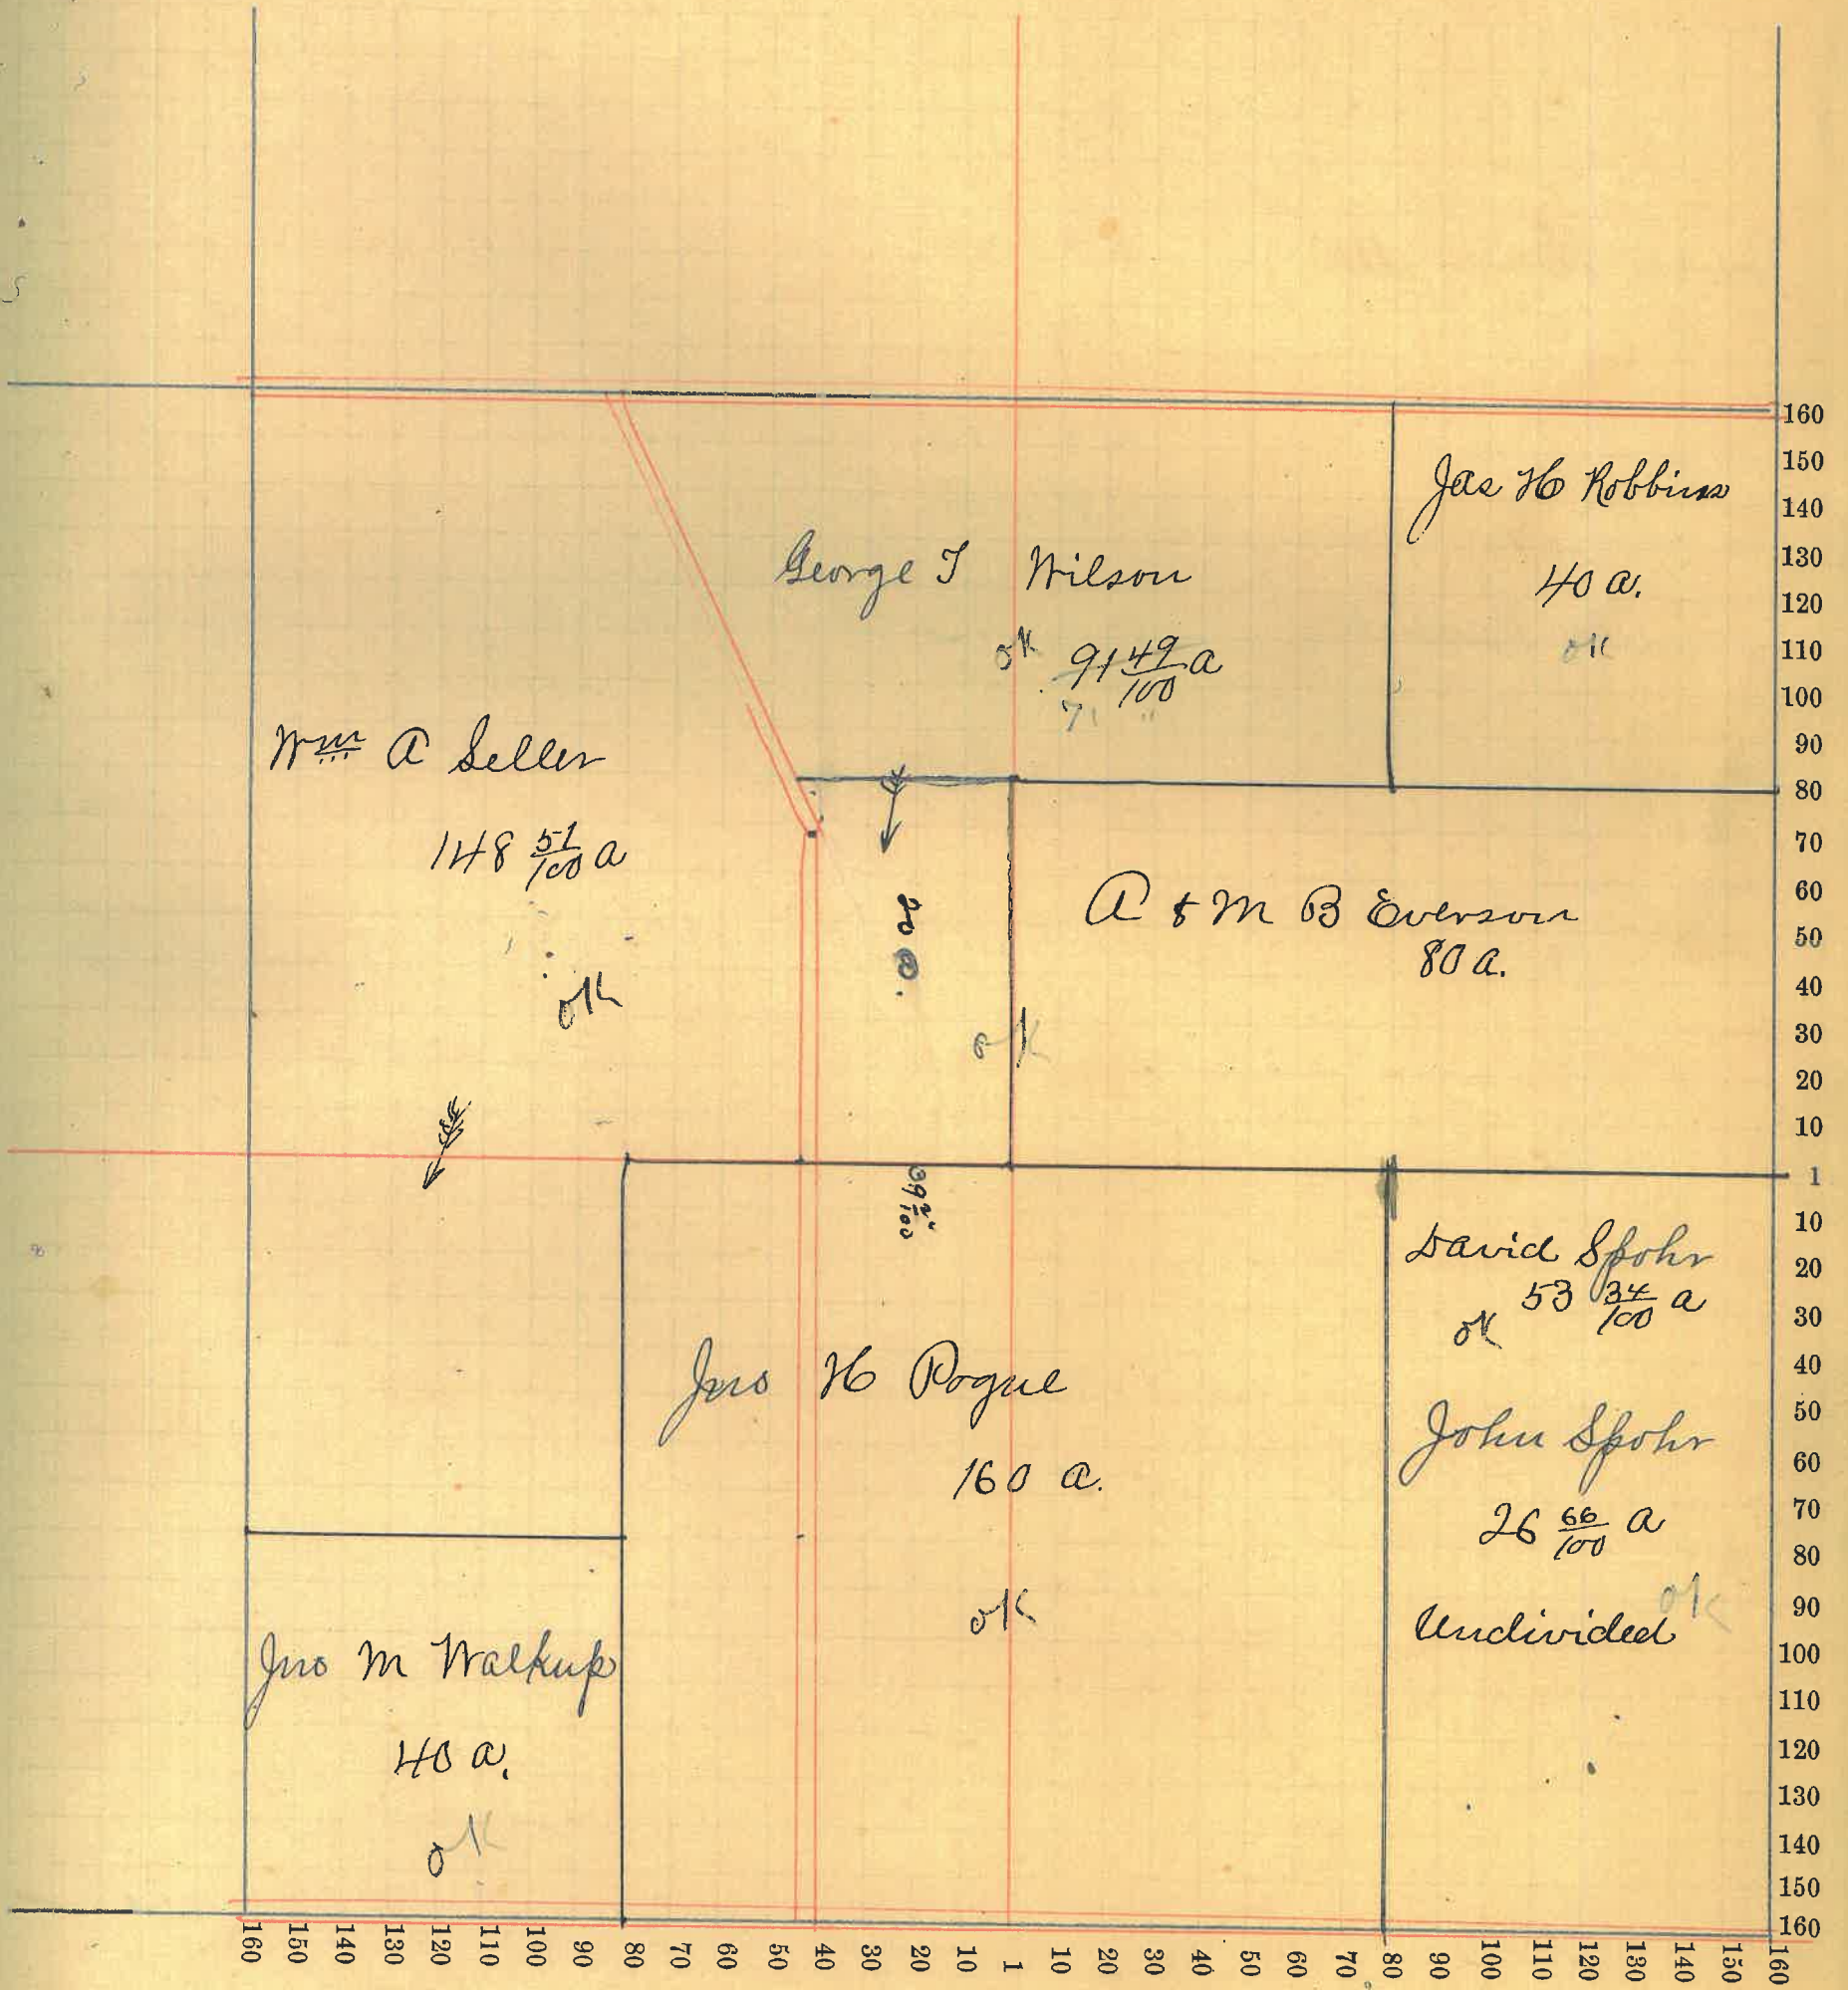 Jas H Robbins
40 a.
ok
George T Wilson
ok 91 49/100 a
71 "
Wm A Seller
148 51/100 a
ok
20 a.
A & M B Everson
80 a.
ok
39 2/100
David Spohr
53 34/100 a
ok
John Spohr
26 66/100 a
ok
Undivided
Jno H Pogue
160 a.
ok
Jno M Walkup
40 a.
ok
160
150
140
130
120
110
100
90
80
70
60
50
40
30
20
10
1
10
20
30
40
50
60
70
80
90
100
110
120
130
140
150
160
160 150 140 130 120 110 100 90 80 70 60 50 40 30 20 10 1 10 20 30 40 50 60 70 80 90 100 110 120 130 140 150 160